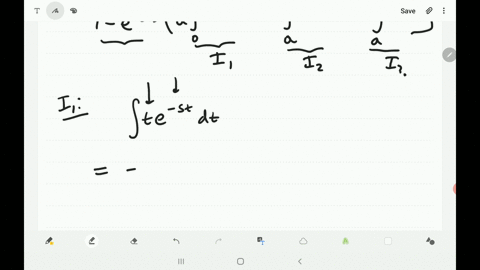 Save
1-e
a a
I₁ I₂ I₃.
I₁: ∫te^{-st} dt
= -